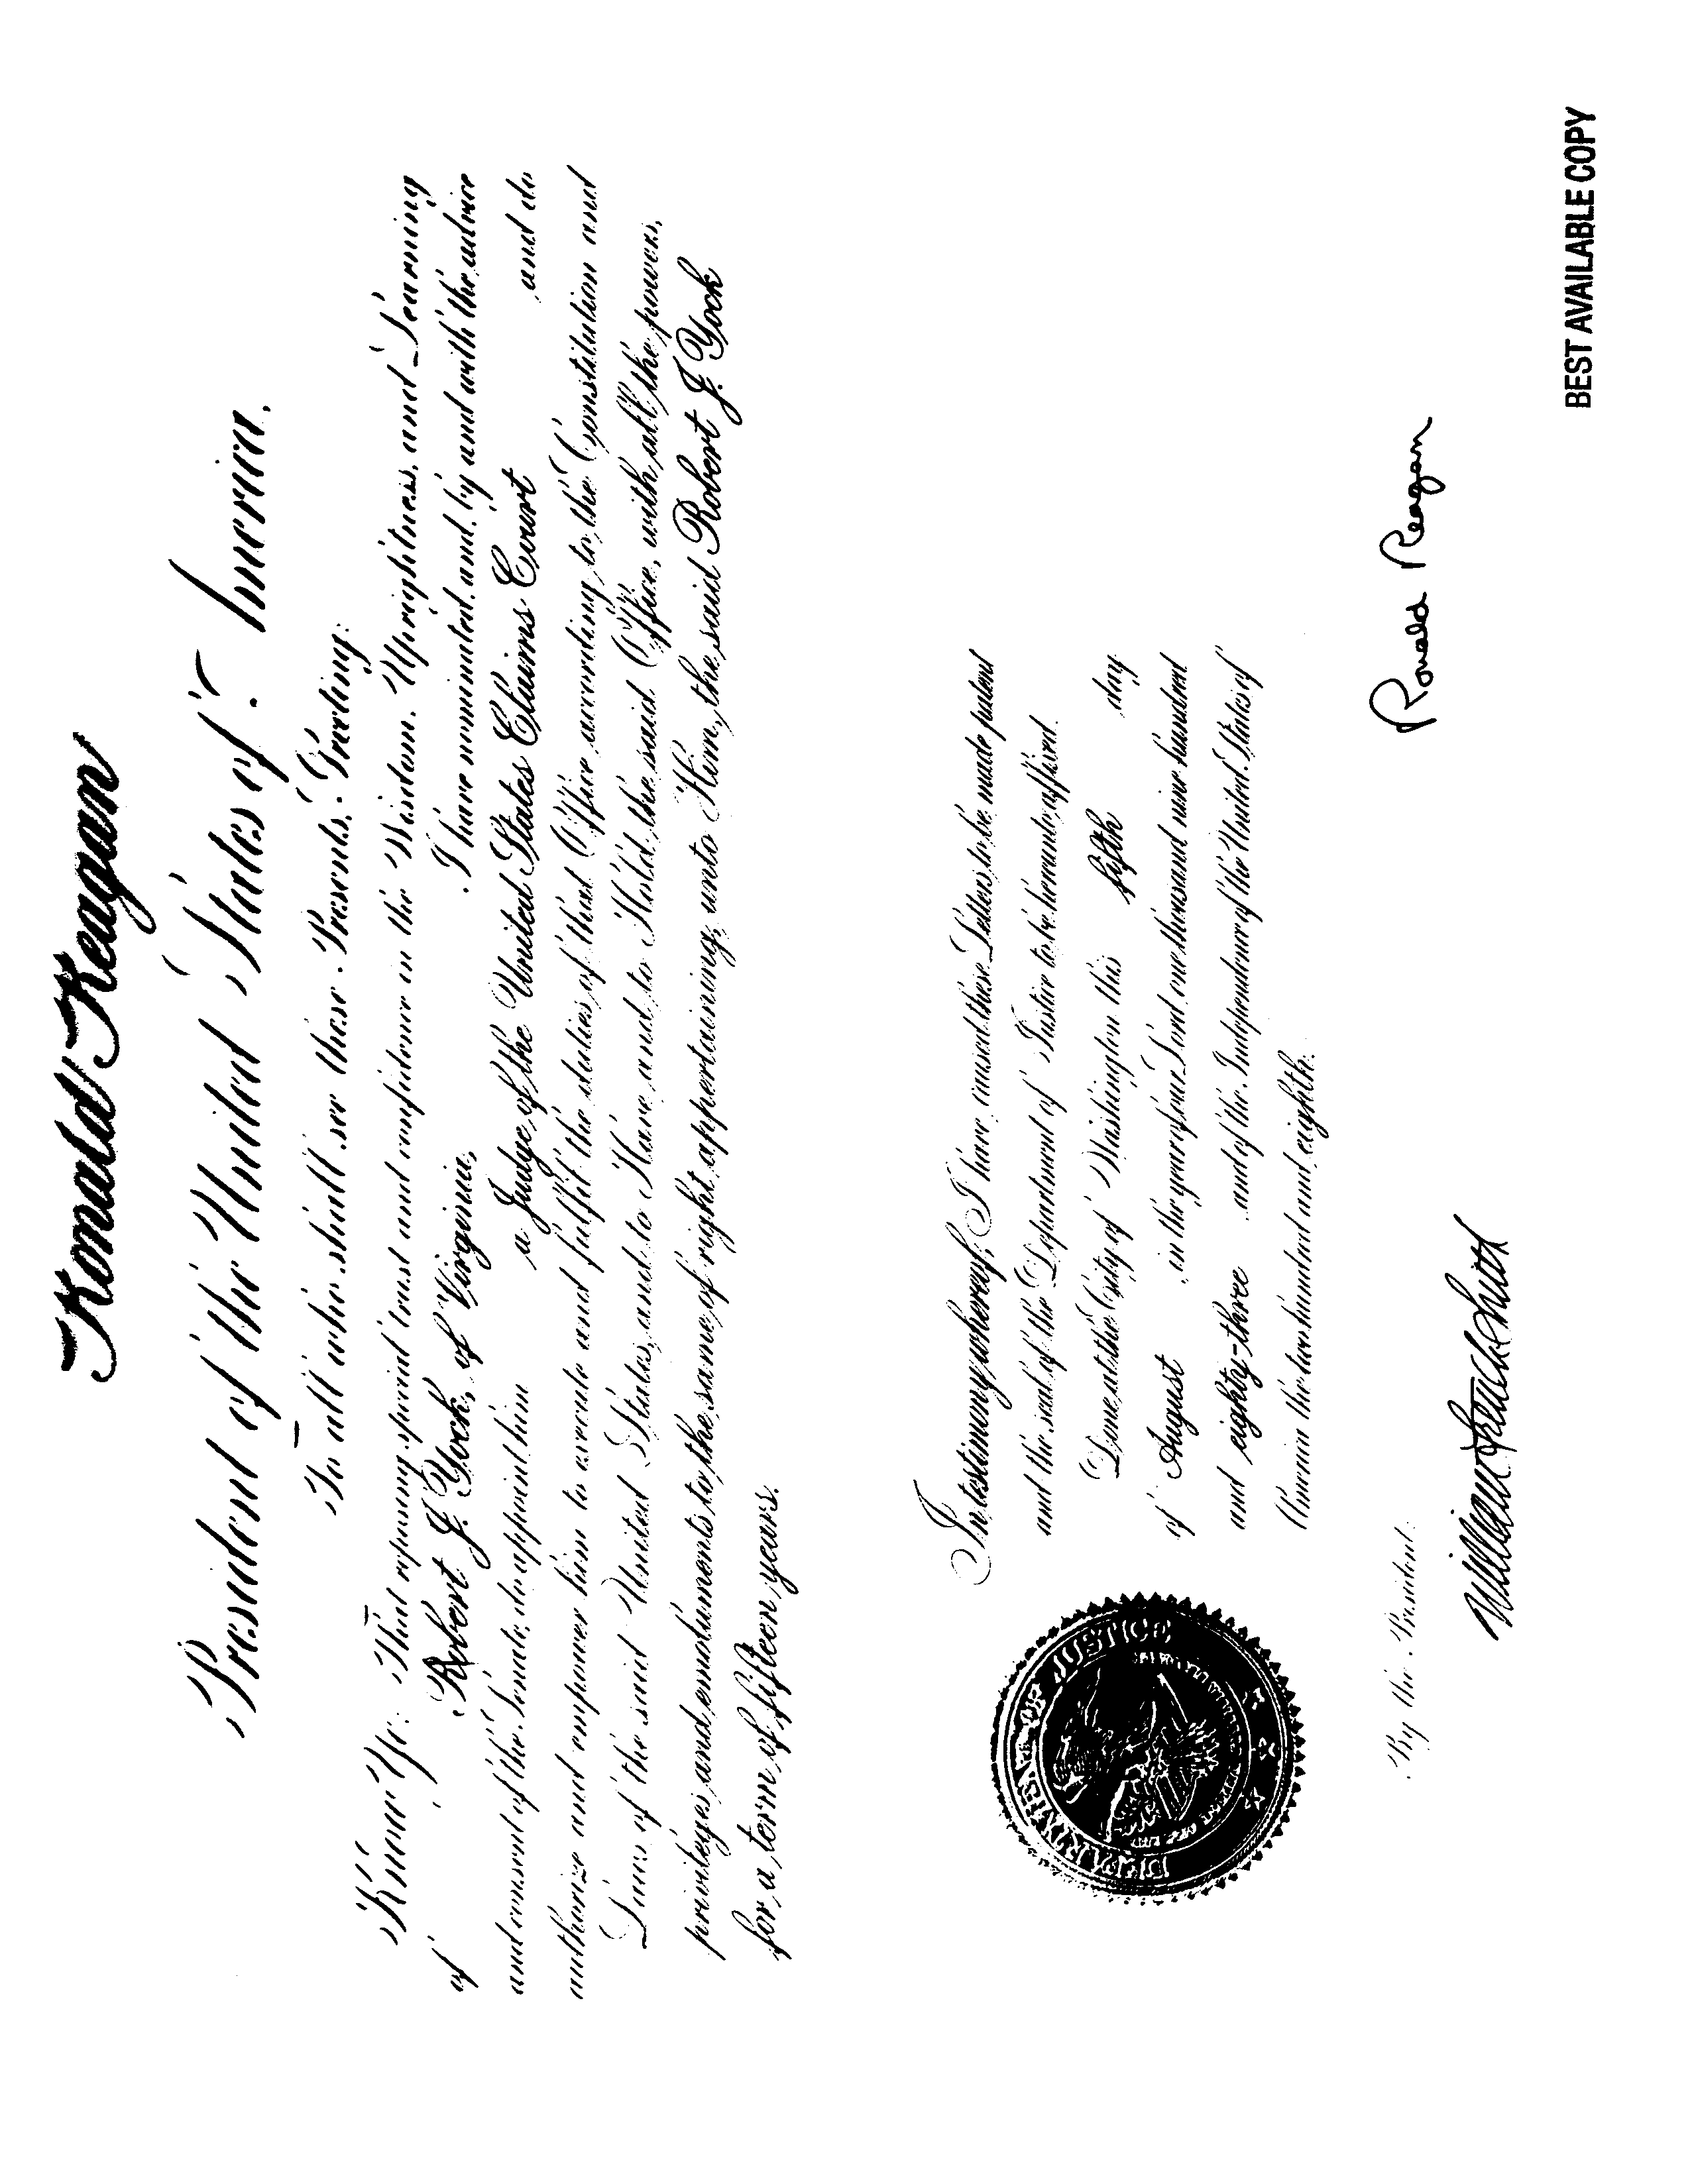 Ronald Reagan
President of the United States of America.
To all who shall see these Presents, Greeting:
Know Ye: That reposing special trust and confidence in the Wisdom, Uprightness, and Learning
of Robert J. Yock, of Virginia, I have nominated, and, by and with the advice
and consent of the Senate, do appoint him a Judge of the United States Claims Court and do
authorize and empower him to execute and fulfil the duties of that Office according to the Constitution and
Laws of the said United States, and to Have and to Hold the said Office, with all the powers,
privileges, and emoluments to the same of right appertaining, unto Him, the said Robert J. Yock
for a term of fifteen years.
In testimony whereof, I have caused these Letters to be made patent
and the seal of the Department of Justice to be hereunto affixed.
Done at the City of Washington this fifth day
of August in the year of our Lord one thousand nine hundred
and eighty-three and of the Independence of the United States of
America the two hundred and eighth.
DEPARTMENT OF JUSTICE
Ronald Reagan
By the President:
William French Smith
BEST AVAILABLE COPY